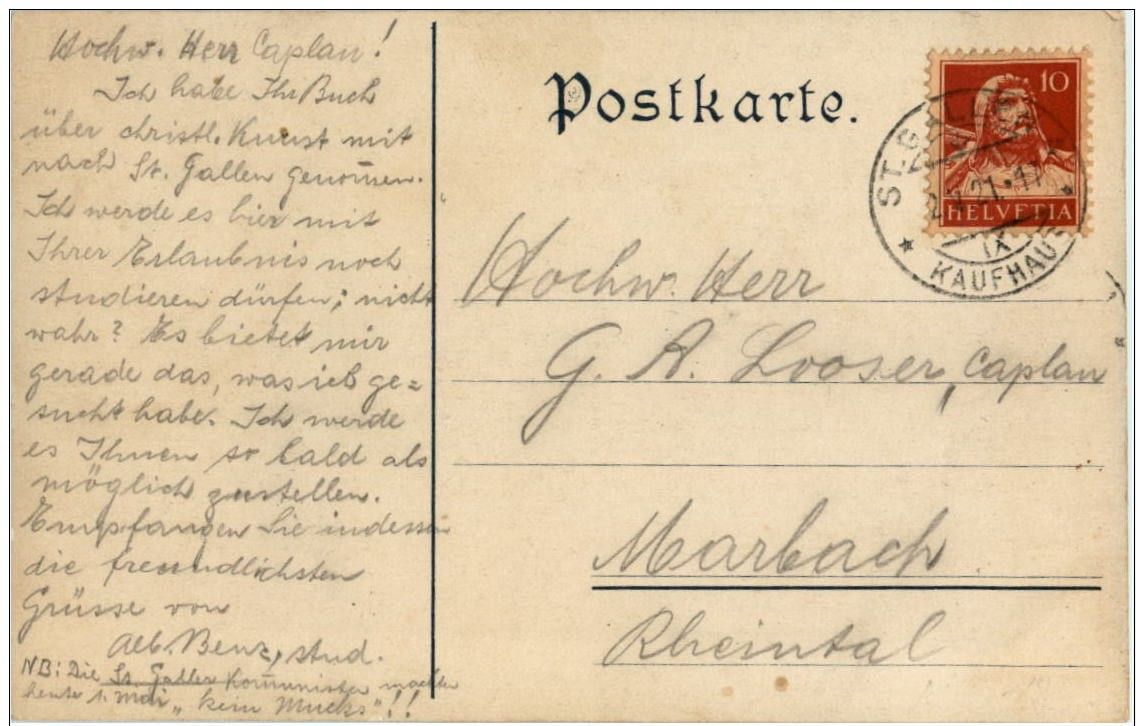 Hochw. Herr Caplan!
Ich habe Ihr Buch
über christl. Kunst mit
nach St. Gallen genom̅en.
Ich werde es hier mit
Ihrer Erlaubnis noch
studieren dürfen; nicht
wahr? Es bietet mir
gerade das, was ich ge=
sucht habe. Ich werde
es Ihnen so bald als
möglich zustellen.
Empfangen Sie indessen
die freundlichsten
Grüsse von
Alb. Benz, stud.
NB: Die St. Galler Kom̅unisten machten
heute 1. Mai „kein Mucks"!!
Postkarte.
10
HELVETIA
ST. GALLEN
21
IX
KAUFHAUS
Hochw. Herr
G. A. Looser, Caplan
Marbach
Rheintal